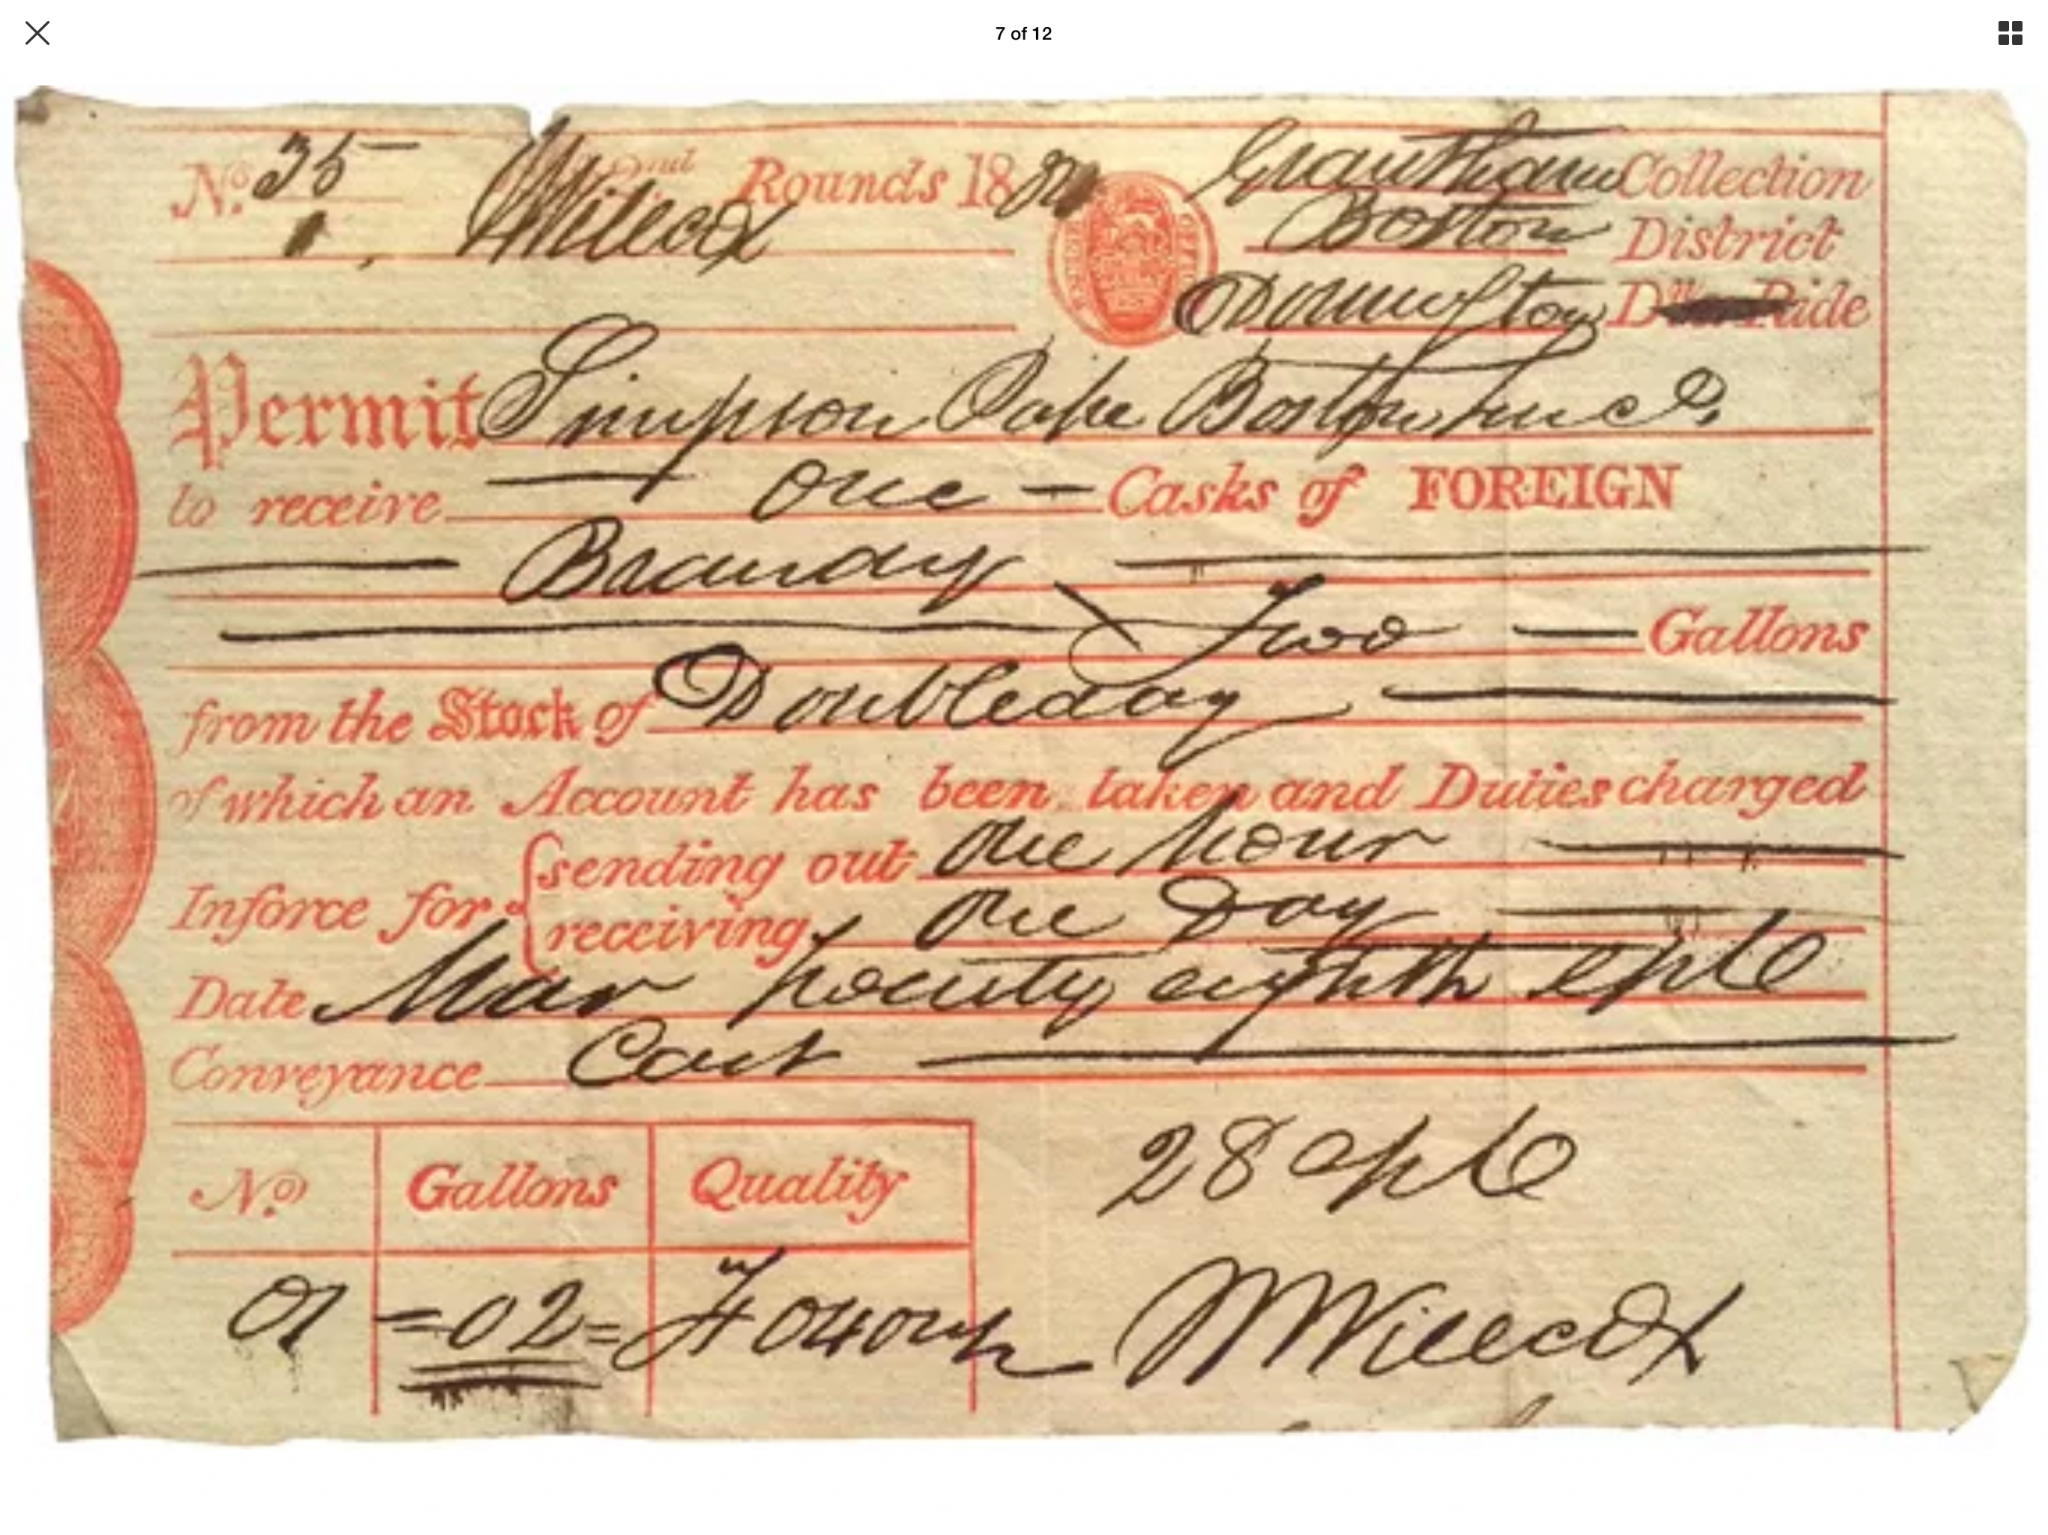 7 of 12
No. 35 Rounds 18 Grantham Collection
Willcox Boston District
Donington Ride
Permit Simpson Pape Boston Linc
to receive one Casks of FOREIGN
Brandy
Two Gallons
from the Stock of Doubleday
of which an Account has been taken and Duties charged
Inforce for sending out one hour
receiving one Day
Date Mar twenty eighth
Conveyance Cart
No. Gallons Quality
28
01 = 02 = Willcox